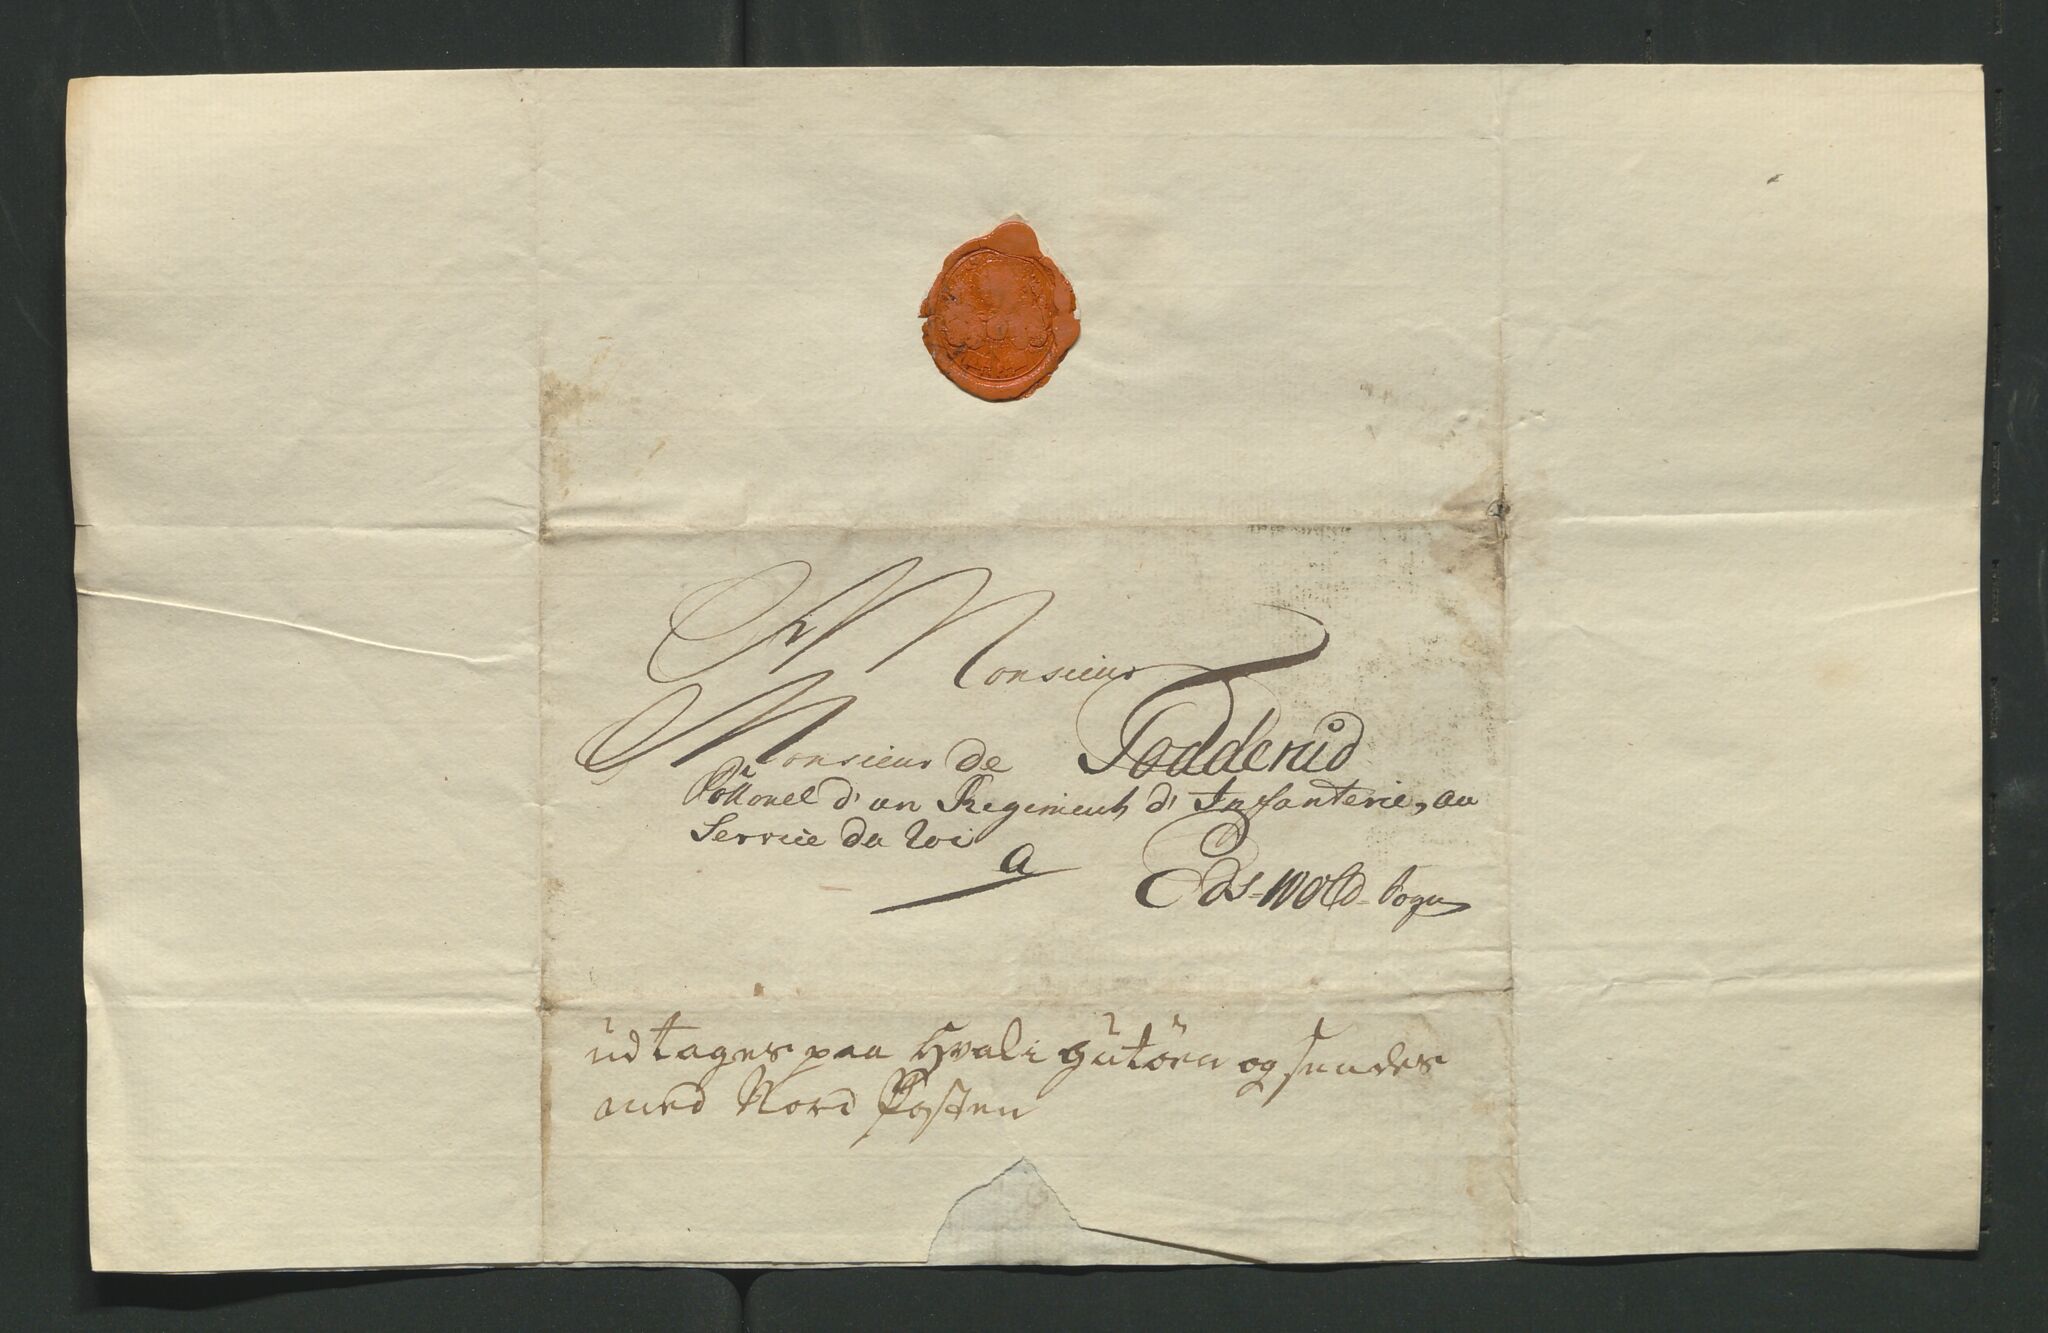 A Monsieur
Monsieur de Todderud
Collonel d'un Regiment d'Infanterie, au
Service du Roi
a Eds-Wold-bogn
üdtages paa Hval i Hütöen og sendes
med Nord Posten